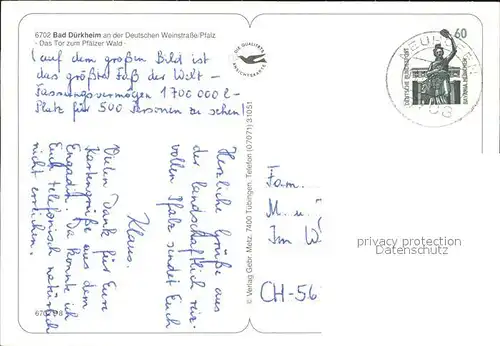 6702 Bad Dürkheim an der Deutschen Weinstraße/Pfalz
- Das Tor zum Pfälzer Wald -
(auf dem großen Bild ist
das größte Faß der Welt -
Fassungsvermögen 1700000 l -
Platz für 500 Personen zu sehen!
Herzliche Grüße aus
der landschaftlich reiz-
vollen Pfalz sendet Euch
Klaus.
Vielen Dank für Eure
Kartengrüße aus dem
Engadin. Da konnte ich
Euch telefonisch natürlich
nicht erreichen.
6702
DIE QUALITÄTS
ANSICHTSKARTE
© Verlag Gebr. Metz, 7400 Tübingen, Telefon (07071) 31051
60
DEUTSCHE BUNDESPOST
BAVARIA MÜNCHEN
Fam.
M. u.
Im W
CH-56
privacy protection
Datenschutz